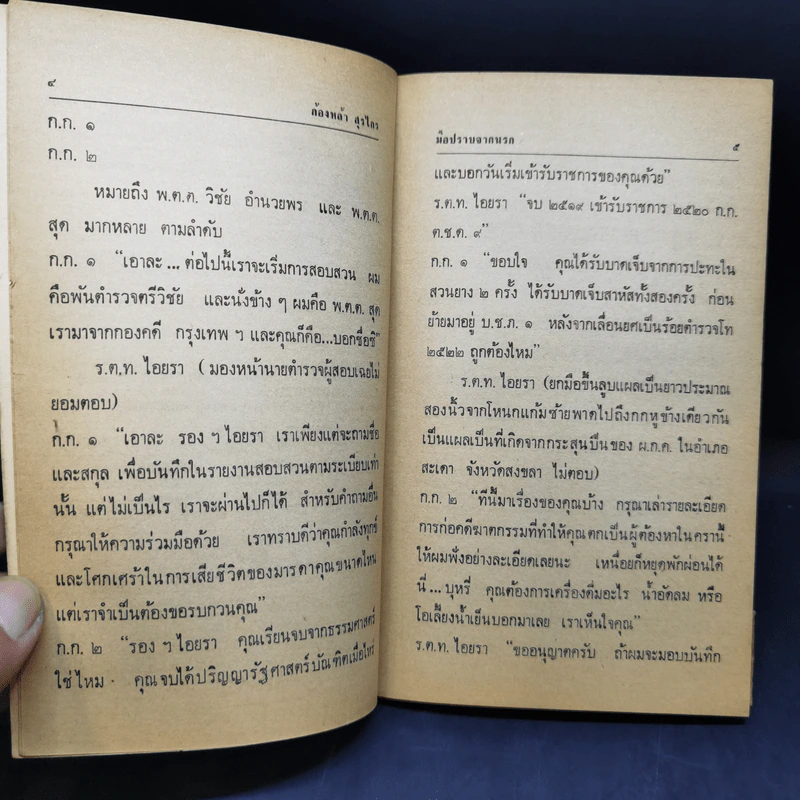 ๔
ก้องหล้า สุรไกร
ก.ก. ๑
ก.ก. ๒
หมายถึง พ.ต.ต. วิชัย อำนวยพร และ พ.ต.ต.
สุด มากหลาย ตามลำดับ
ก.ก. ๑ “เอาละ ... ต่อไปนี้เราจะเริ่มการสอบสวน ผม
คือพันตำรวจตรีวิชัย และนั่งข้าง ๆ ผมคือ พ.ต.ต. สุด
เรามาจากกองคดี กรุงเทพ ฯ และคุณก็คือ...บอกชื่อซิ”
ร.ต.ท. ไอยรา (มองหน้านายตำรวจผู้สอบเฉยไม่
ยอมตอบ)
ก.ก. ๑ “เอาละ รอง ฯ ไอยรา เราเพียงแต่จะถามชื่อ
และสกุล เพื่อบันทึกในรายงานสอบสวนตามระเบียบเท่า
นั้น แต่ไม่เป็นไร เราจะผ่านไปก็ได้ สำหรับคำถามอื่น
กรุณาให้ความร่วมมือด้วย เราทราบดีว่าคุณกำลังทุกข์
และโศกเศร้าในการเสียชีวิตของมารดาคุณขนาดไหน
แต่เราจำเป็นต้องขอรบกวนคุณ”
ก.ก. ๒ “รอง ฯ ไอยรา คุณเรียนจบจากธรรมศาสตร์
ใช่ไหม คุณจบได้ปริญญารัฐศาสตร์บัณฑิตเมื่อไหร่
มือปราบจากนรก
๕
และบอกวันเริ่มเข้ารับราชการของคุณด้วย”
ร.ต.ท. ไอยรา “จบ ๒๕๑๙ เข้ารับราชการ ๒๕๒๐ ก.ก.
ต.ช.ด. ๙”
ก.ก. ๑ “ขอบใจ คุณได้รับบาดเจ็บจากการปะทะใน
สวนยาง ๒ ครั้ง ได้รับบาดเจ็บสาหัสทั้งสองครั้ง ก่อน
ย้ายมาอยู่ บ.ช.ภ. ๑ หลังจากเลื่อนยศเป็นร้อยตำรวจโท
๒๕๒๒ ถูกต้องไหม”
ร.ต.ท. ไอยรา (ยกมือขึ้นลูบแผลเป็นยาวประมาณ
สองนิ้วจากโหนกแก้มซ้ายพาดไปถึงกกหูข้างเดียวกัน
เป็นแผลเป็นที่เกิดจากกระสุนปืนของ ผ.ก.ค. ในอำเภอ
สะเดา จังหวัดสงขลา ไม่ตอบ)
ก.ก. ๒ “ทีนี้มาเรื่องของคุณบ้าง กรุณาเล่ารายละเอียด
การก่อคดีฆาตกรรมที่ทำให้คุณตกเป็นผู้ต้องหาในครานี้
ให้ผมฟังอย่างละเอียดเลยนะ เหนื่อยก็หยุดพักผ่อนได้
นี่ ... บุหรี่ คุณต้องการเครื่องดื่มอะไร น้ำอัดลม หรือ
โอเลี้ยงน้ำเย็นบอกมาเลย เราเห็นใจคุณ”
ร.ต.ท. ไอยรา “ขออนุญาตครับ ถ้าผมจะมอบบันทึก